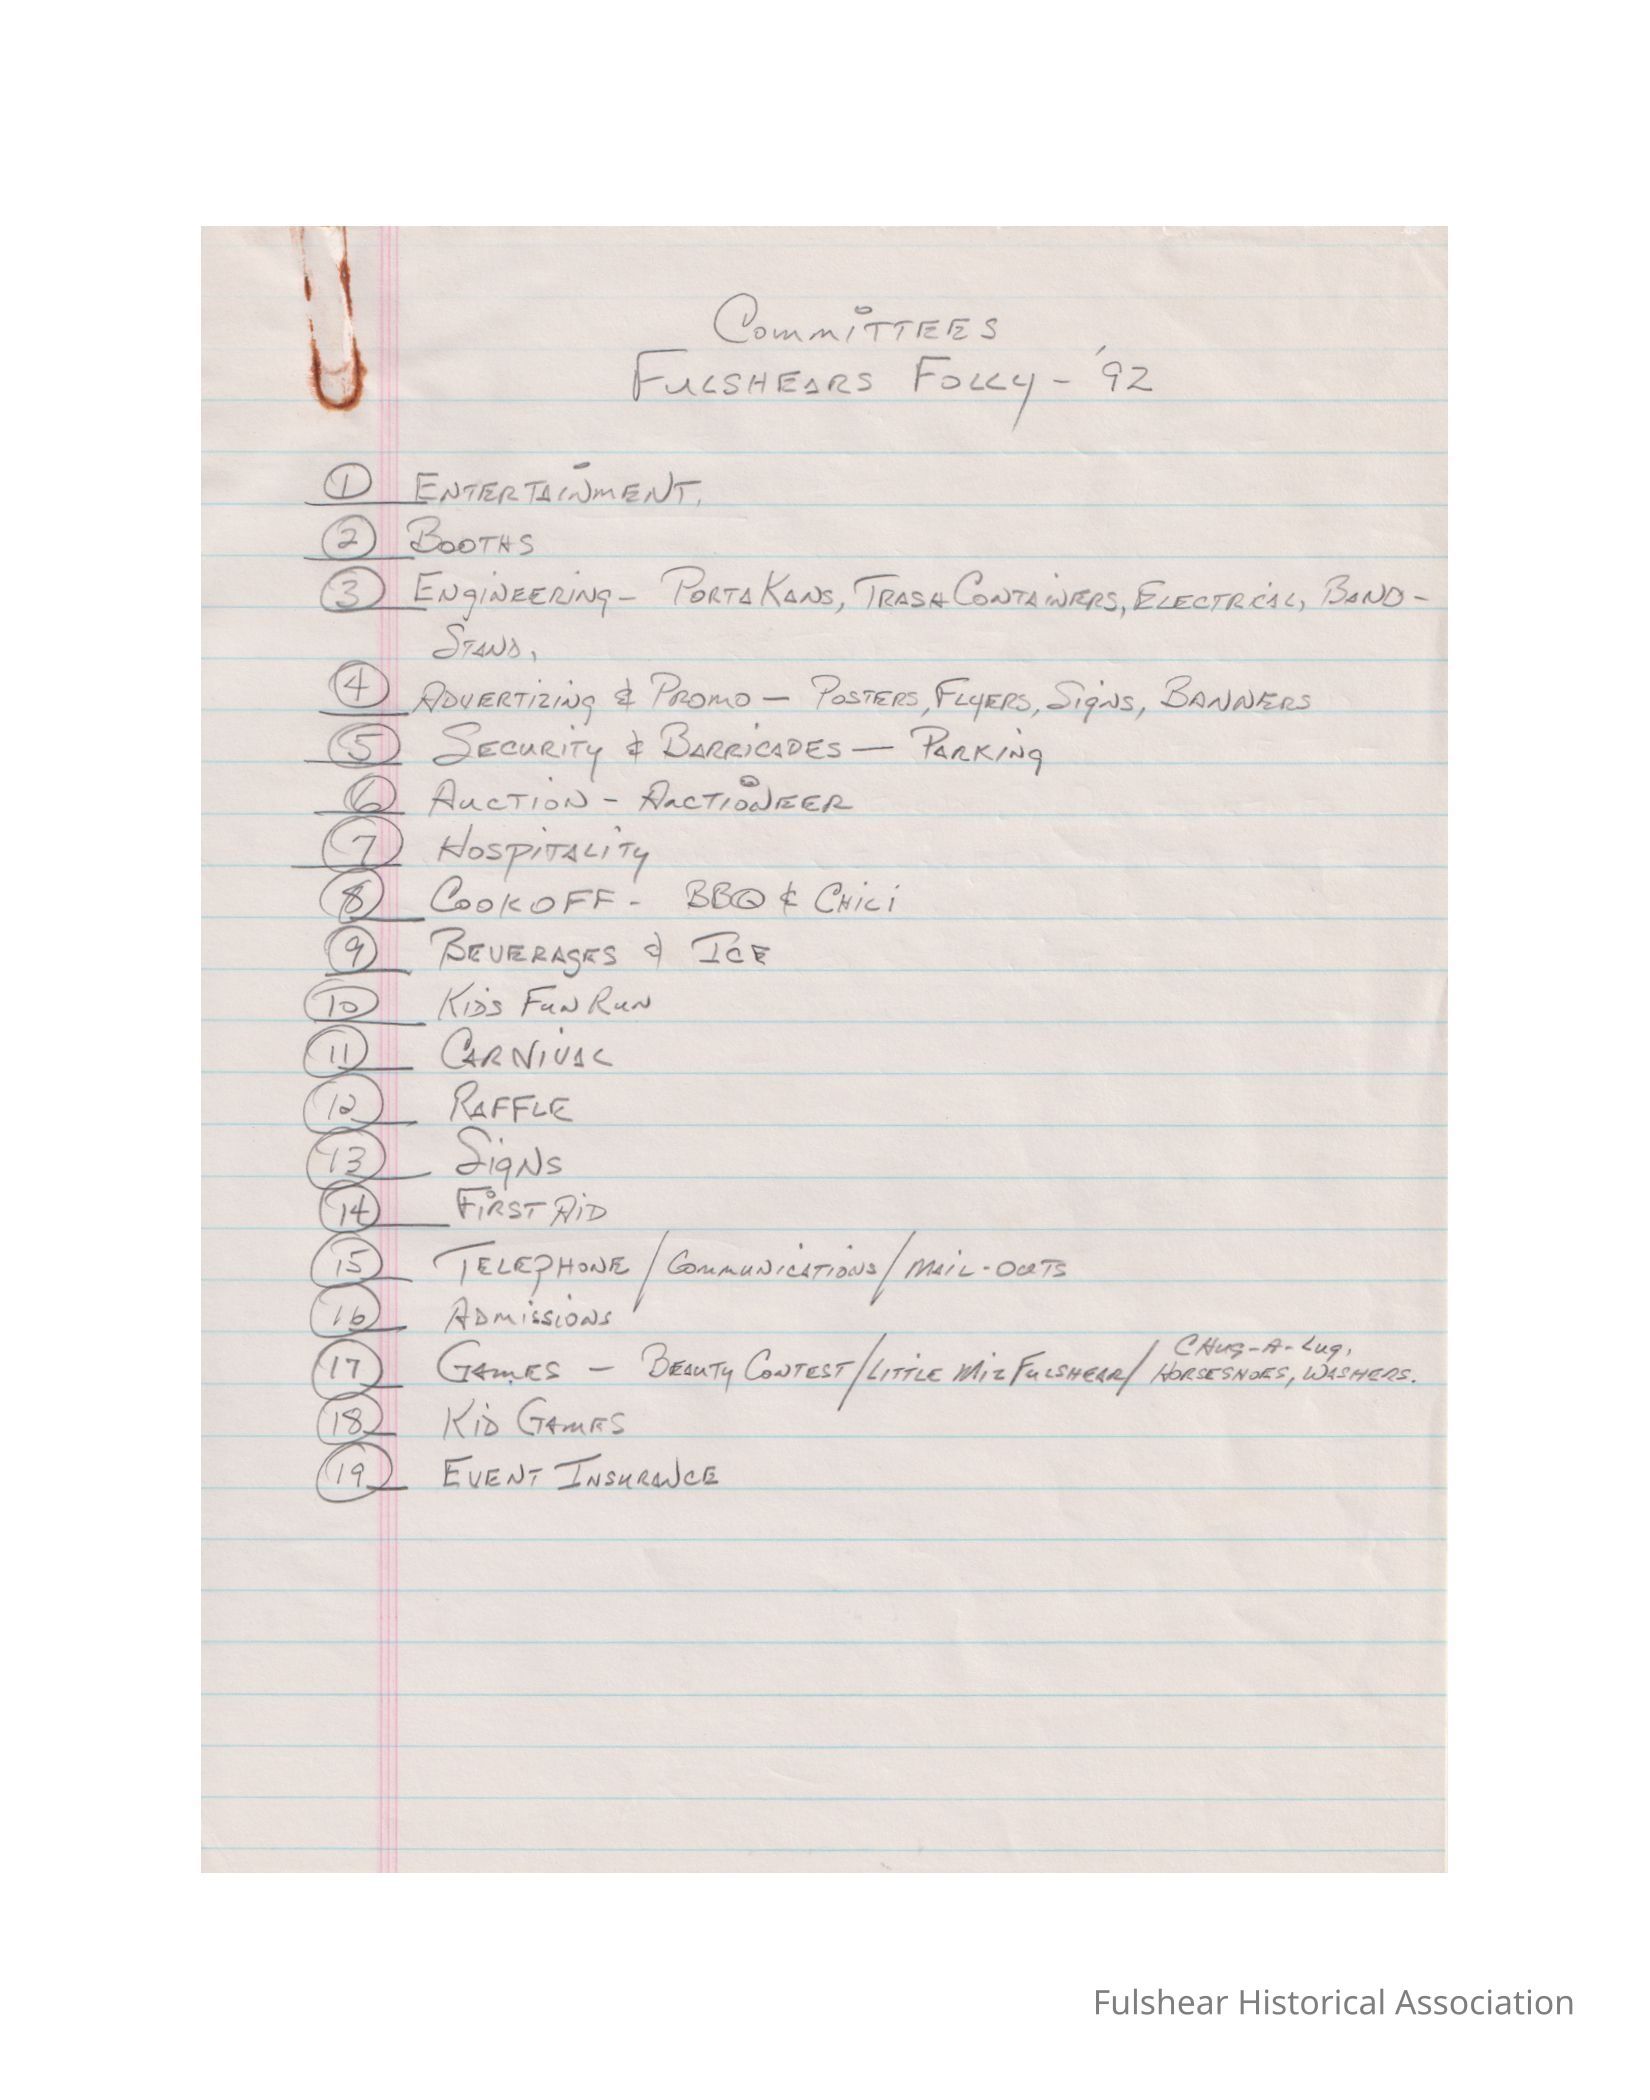 Committees
Fulshears Folly - '92
1 Entertainment.
2 Booths
3 Engineering - Porta Kans, Trash Containers, Electrical, Band-
Stand,
4 Advertizing & Promo - Posters, Flyers, Signs, Banners
5 Security & Barricades - Parking
6 Auction - Auctioneer
7 Hospitality
8 Cookoff - BBQ & Chili
9 Beverages & Ice
10 Kids Fun Run
11 Carnival
12 Raffle
13 Signs
14 First Aid
15 Telephone / Communications / Mail-outs
16 Admissions
17 Games - Beauty Contest / Little Miz Fulshear / Chug-A-Lug,
Horseshoes, Washers.
18 Kid Games
19 Event Insurance
Fulshear Historical Association